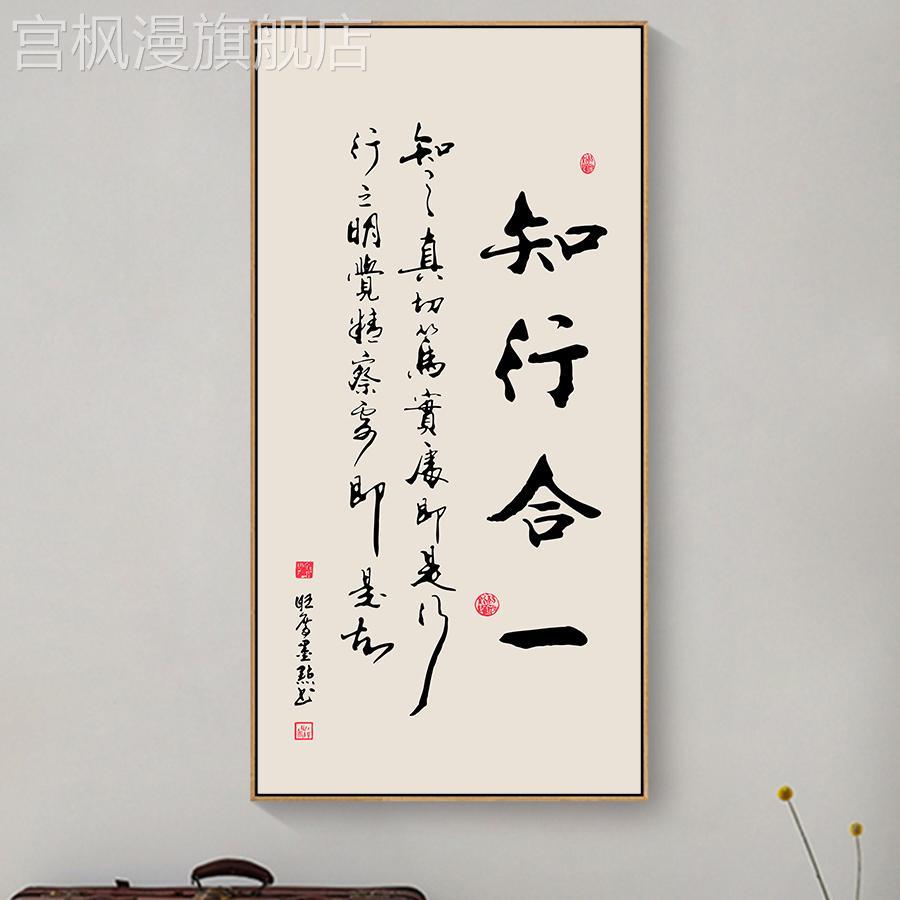 宫枫漫旗舰店
知行合一
知之真切篤實處即是行
行之明覺精察處即是知